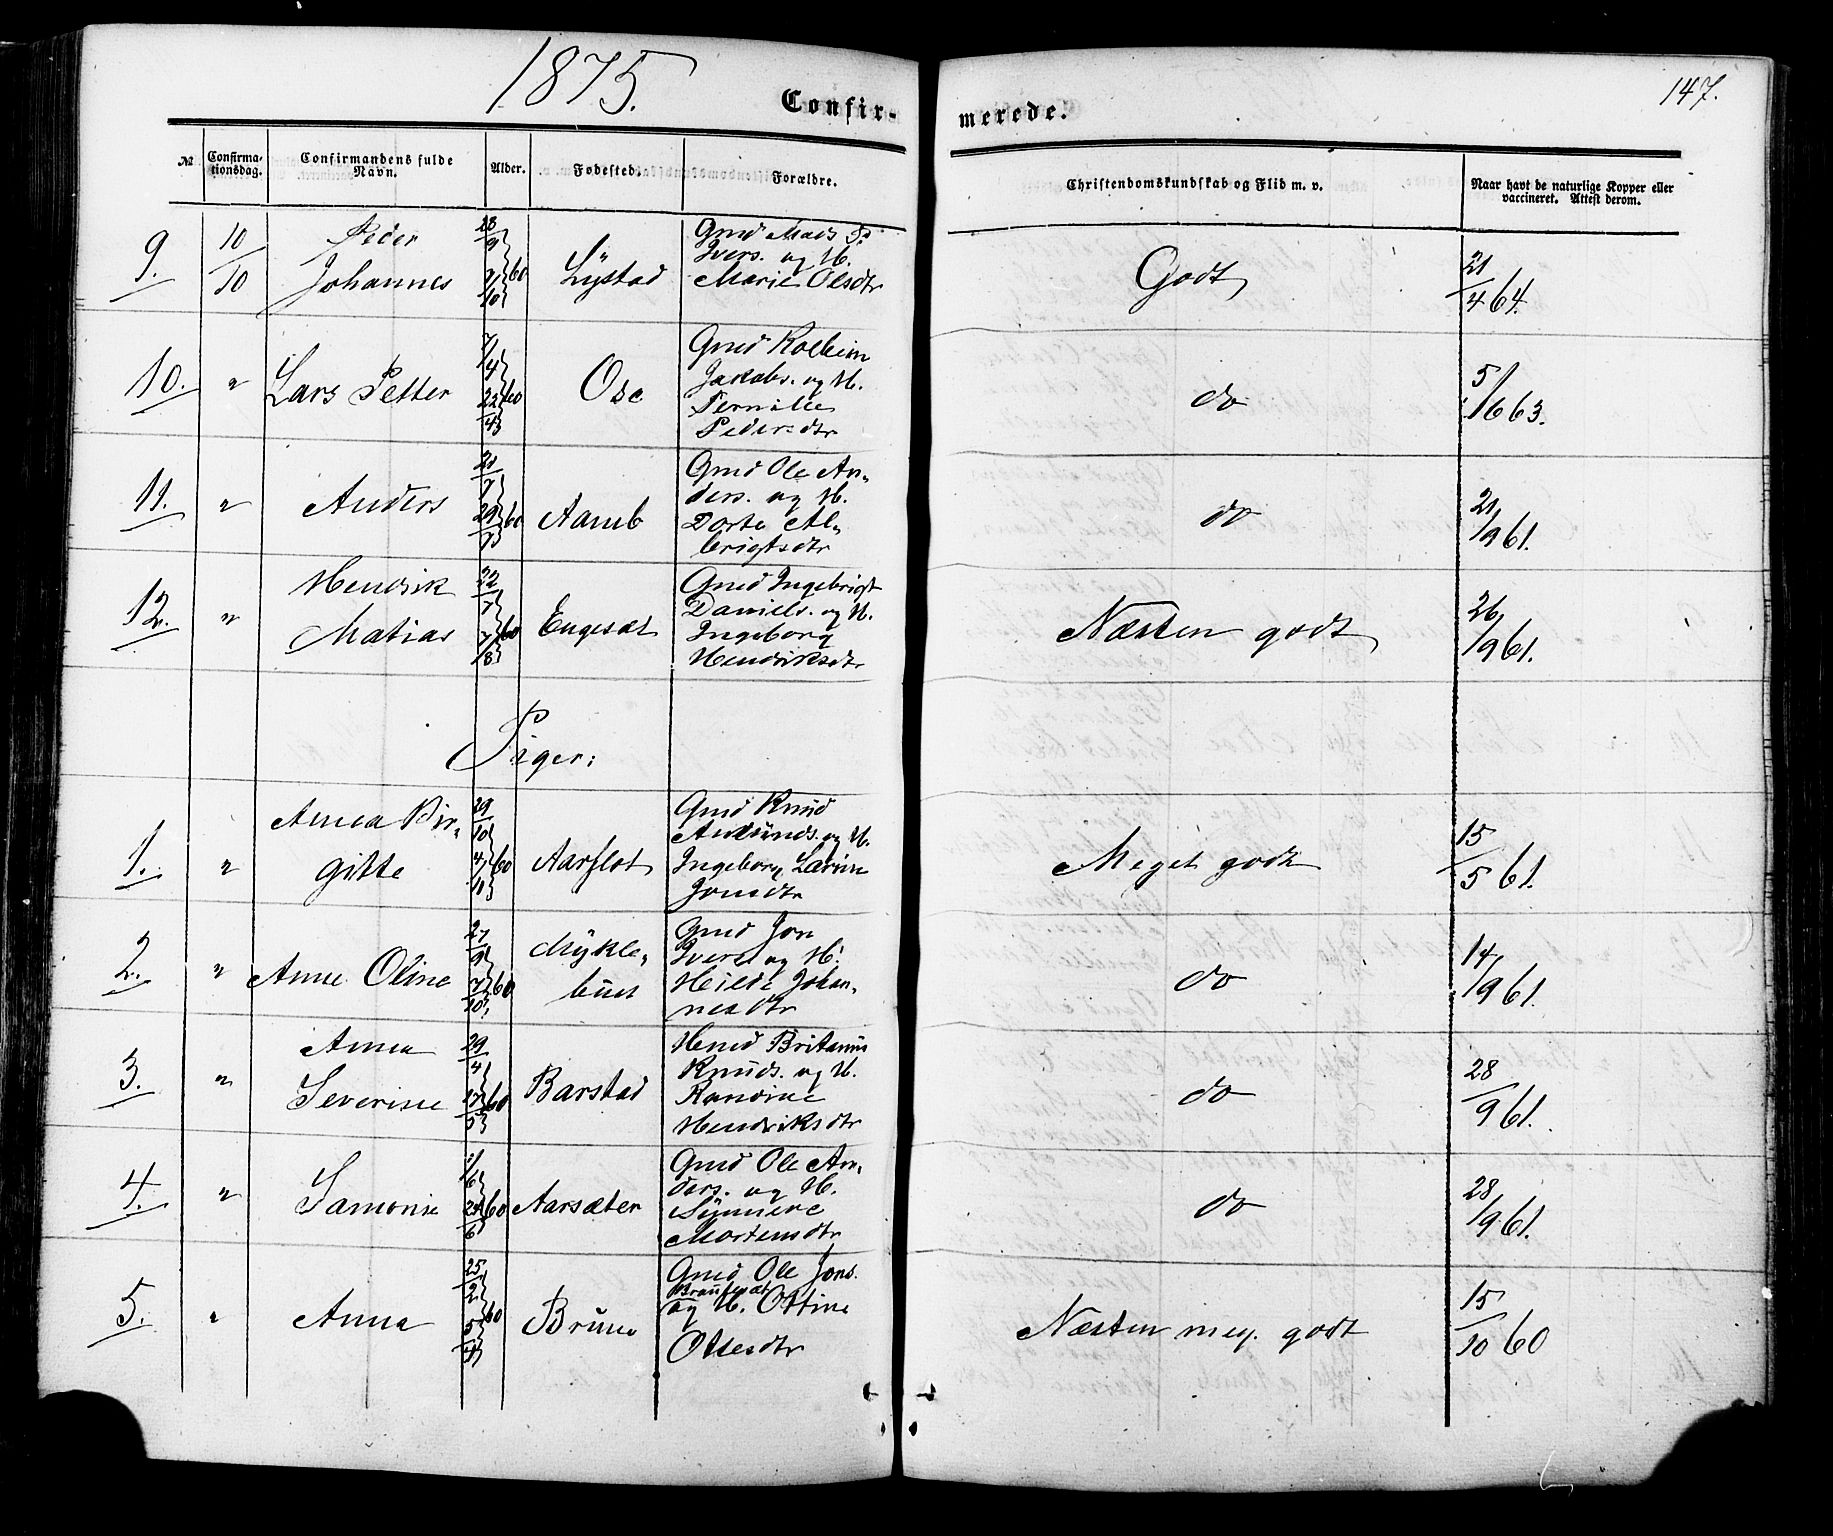 1875.
147.
Confir-
merede.
№
Confirma-
tionsdag.
Confirmandens fulde
Navn.
Alder.
Fødested.
Forældre.
Christendomskundskab og Flid m. v.
Naar havt de naturlige Kopper eller
vaccineret. Attest derom.
9. 10/10 Peder
Johannes
28/9 2/10 60
Lystad
Gmd Mads P.
Ivers. og H.
Marie Olsdtr
Godt
21/4 64.
10. " Lars Petter
7/4 22/4 60
Ose
Gmd Kolbein
Jakobs. og H.
Pernille
Pedersdtr
do
5/6 63.
11. " Anders
21/7 29/7 60
Aamb
Gmd Ole An-
ders. og H.
Dorte Al-
brigtsdtr
do
21/9 61.
12. " Hendrik
Matias
22/7 7/8 60
Engesæt
Gmd Ingebrigt
Daniels. og H.
Ingeborg
Hendriksdtr
Næsten godt
26/9 61.
Piger:
1. " Anna Bir-
gitte
29/10 4/10 60
Aarflot
Gmd Knud
Amunds. og H.
Ingeborg Lærine
Jonsdtr
Meget godt
15/5 61.
2. " Anne Oline
27/9 7/10 60
Mykle-
bust
Gmd Jon
Ivers. og H.
Hilde Johan-
nesdtr
do
14/9 61.
3. " Anna
Severine
29/4 27/5 60
Barstad
Hmd Britanus
Knuds. og H.
Randine
Hendriksdtr
do
28/9 61.
4. " Samonie
1/6 24/6 60
Aarsæter
Gmd Ole An-
ders. og H.
Synnere
Mortensdtr
do
28/9 61.
5. " Anna
25/2 5/4 60
Brune
Gmd Ole Jons.
og H. Ottine
Ottesdtr
Næsten meg. godt
15/10 60